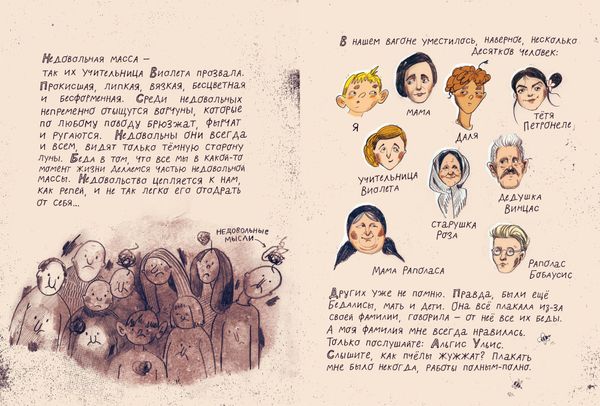 Недовольная масса –
так их учительница Виолета прозвала.
Прокисшая, липкая, вязкая, бесцветная
и бесформенная. Среди недовольных
непременно отыщутся ворчуны, которые
по любому поводу брюзжат, фычат
и ругаются. Недовольны они всегда
и всем, видят только тёмную сторону
луны. Беда в том, что все мы в какой-то
момент жизни делаемся частью недовольной
массы. Недовольство цепляется к нам,
как репей, и не так легко его отодрать
от себя...
недовольные
мысли
В нашем вагоне уместилось, наверное, несколько
десятков человек:
Я
мама
Даля
тётя
Петронеле
учительница
Виолета
старушка
Роза
дедушка
Винцас
Мама Раполаса
Раполас
Бобаусис
Других уже не помню. Правда, были ещё
Бедалисы, мать и дети. Она всё плакала из-за
своей фамилии, говорила – от неё все их беды.
А моя фамилия мне всегда нравилась.
Только послушайте: Альгис Ульис.
Слышите, как пчёлы жужжат? Плакать
мне было некогда, работы полным-полно.